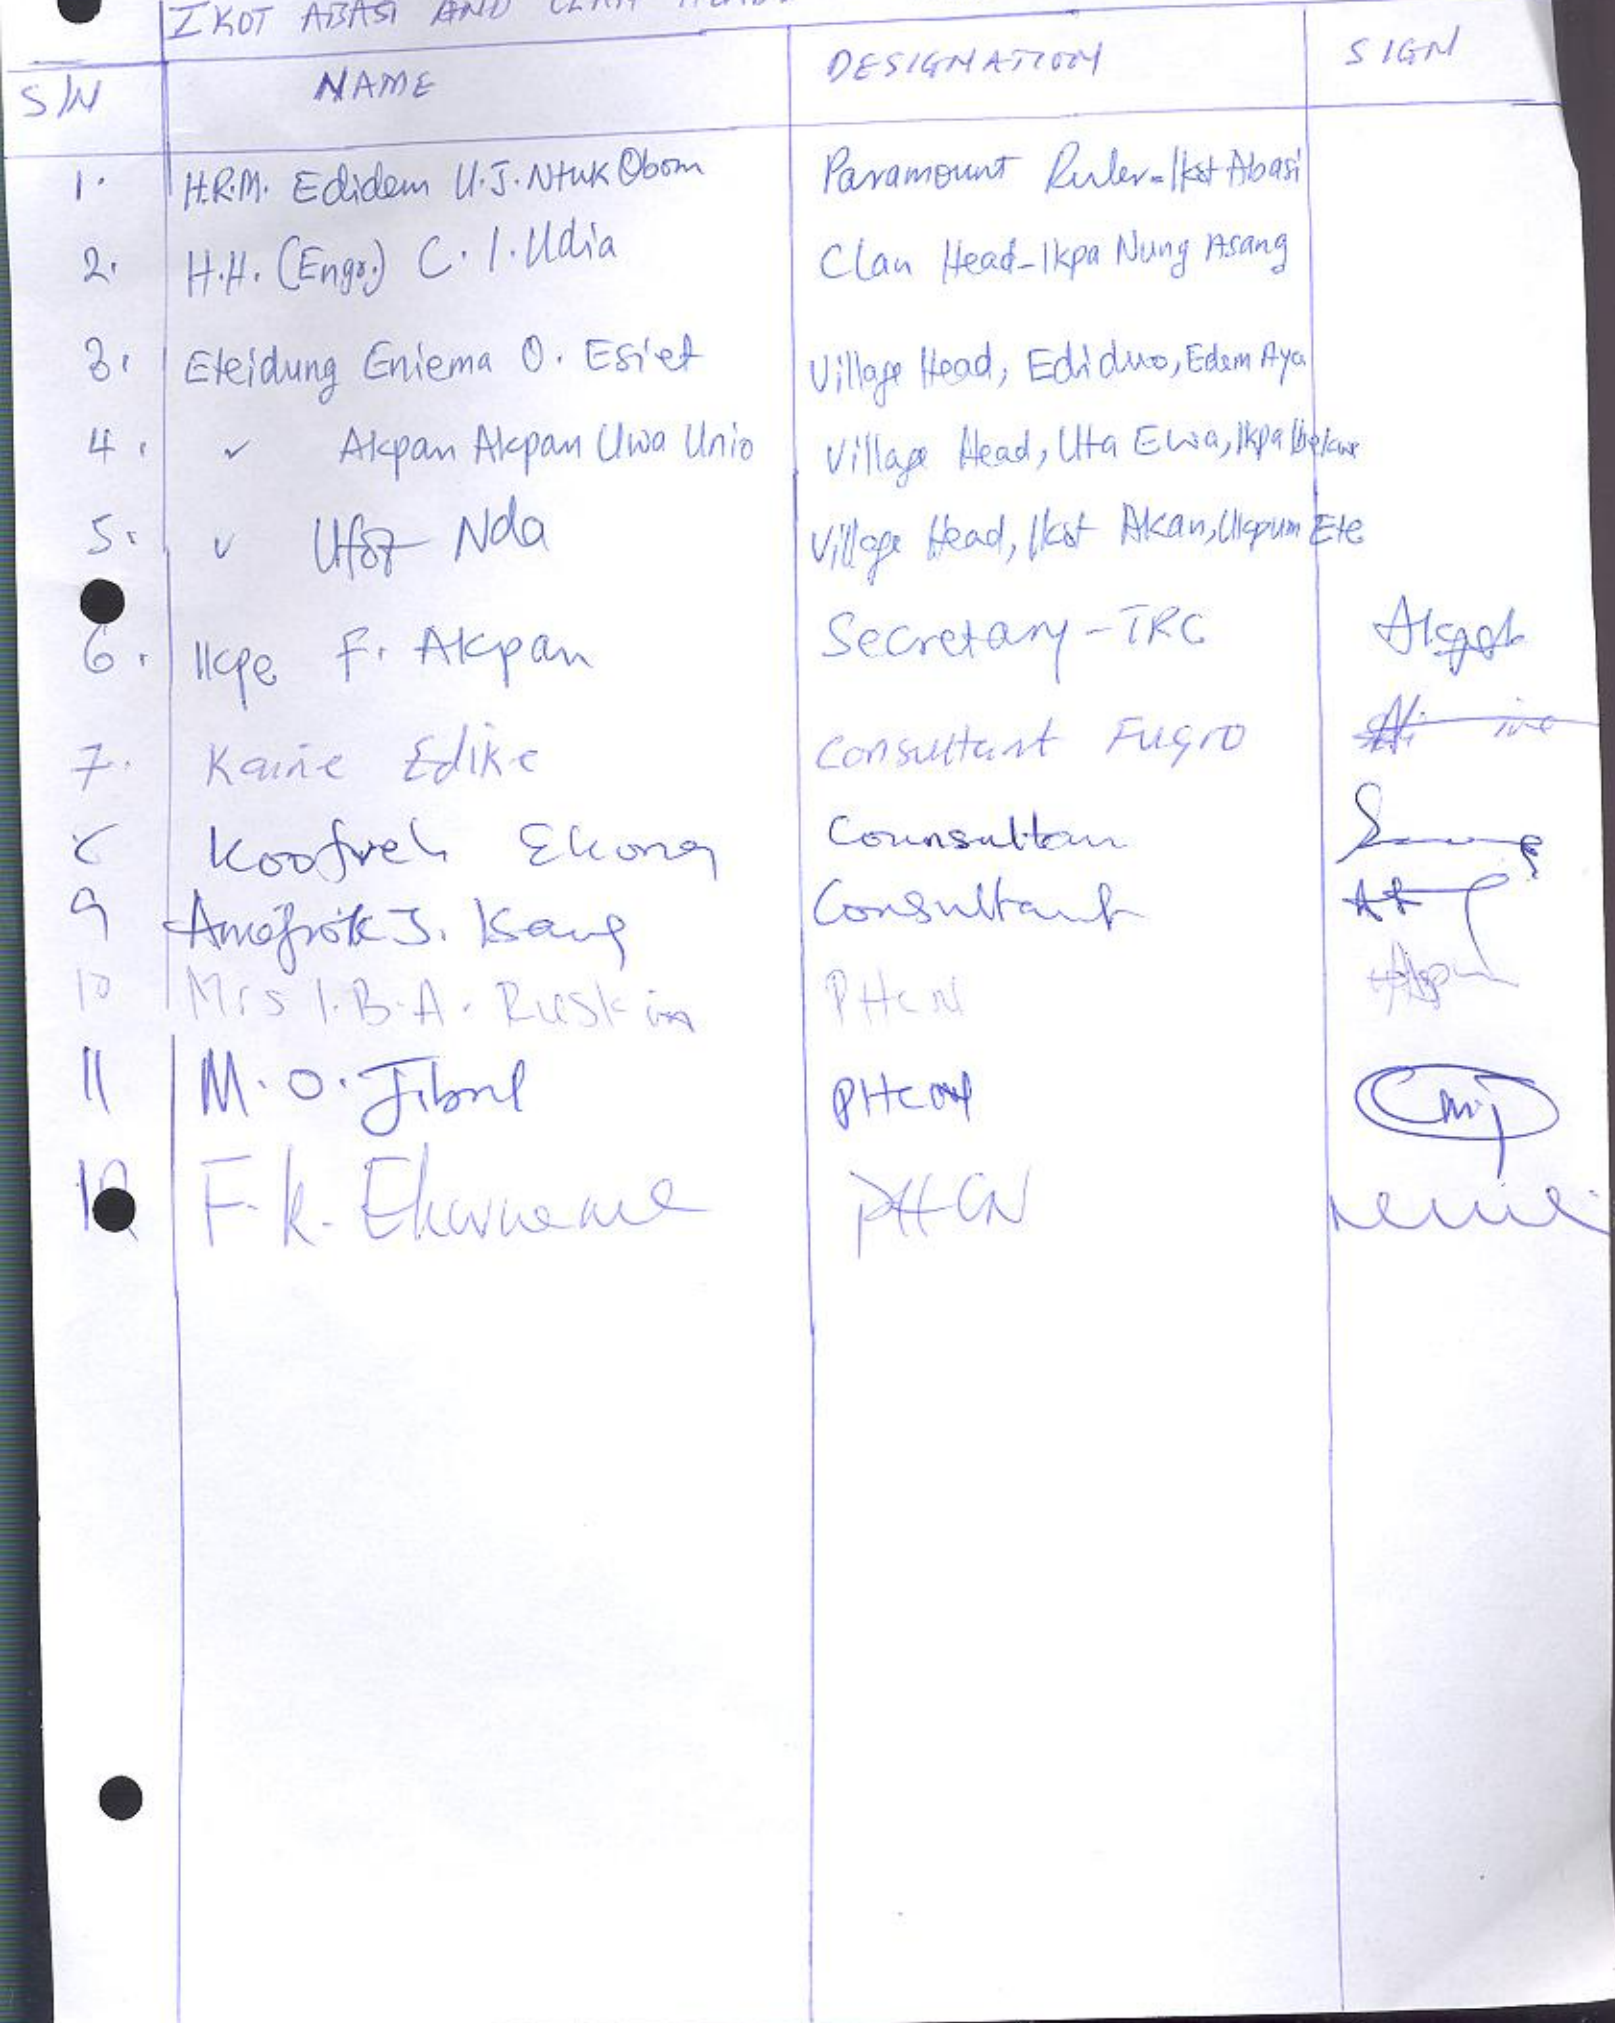 IKOT ABASI AND CLAN
S/N NAME DESIGNATION SIGN
1. H.R.M. Edidem U.J. Ntuk Obom Paramount Ruler - Ikot Abasi
2. H.H. (Engr.) C. I. Udia Clan Head - Ikpa Nung Asang
3. Eteidung Eniema O. Esiet Village Head, Ediduo, Edem Aya
4. ✓ Akpan Akpan Uwa Unio Village Head, Uta Ewa, Ikpa Ibekwe
5. ✓ Ufot Nda Village Head, Ikot Akan, Ukpum Ete
6. Ikpe F. Akpan Secretary - TRC
7. Kaine Edike Consultant Fugro
8 Koofreh Ekong Counsultan
9 Amefrok J. Isang Consultant
10 Mrs I.B.A. Ruskin PHCN
11 M. O. Jibril PHCN
12 F. K. Ekwueme PHCN